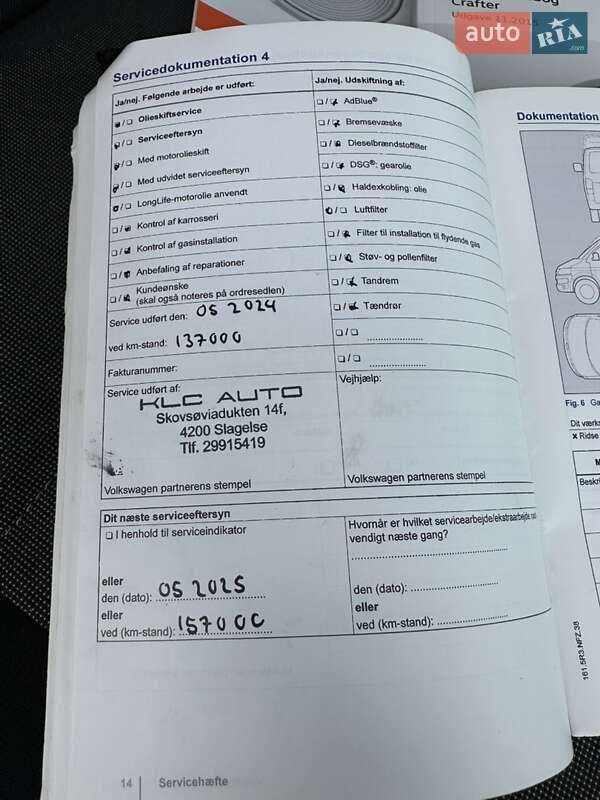 Crafter
Udgave 11.2015
auto RIA .com
Servicedokumentation 4
Ja/nej. Følgende arbejde er udført:
Ja/nej. Udskiftning af:
Olieskiftservice
AdBlue®
Serviceeftersyn
Bremsevæske
Med motorolieskift
Dieselbrændstoffilter
Med udvidet serviceeftersyn
DSG®: gearolie
LongLife-motorolie anvendt
Haldexkobling: olie
Kontrol af karrosseri
Luftfilter
Kontrol af gasinstallation
Filter til installation til flydende gas
Anbefaling af reparationer
Støv- og pollenfilter
Kundeønske
(skal også noteres på ordresedlen)
Tandrem
Service udført den: 05 2024
Tændrør
ved km-stand: 137000
Fakturanummer:
Service udført af:
Vejhjælp:
KLC AUTO
Skovsøviadukten 14f,
4200 Slagelse
Tlf. 29915419
Volkswagen partnerens stempel
Volkswagen partnerens stempel
Dit næste serviceeftersyn
I henhold til serviceindikator
Hvornår er hvilket servicearbejde/ekstraarbejde
vendigt næste gang?
eller
den (dato): 05 2025
den (dato):
eller
eller
ved (km-stand): 157000
ved (km-stand):
14 Servicehæfte
Dokumentation
Fig. 6
Dit værks
x Ridse
161.5R3.NFZ.38